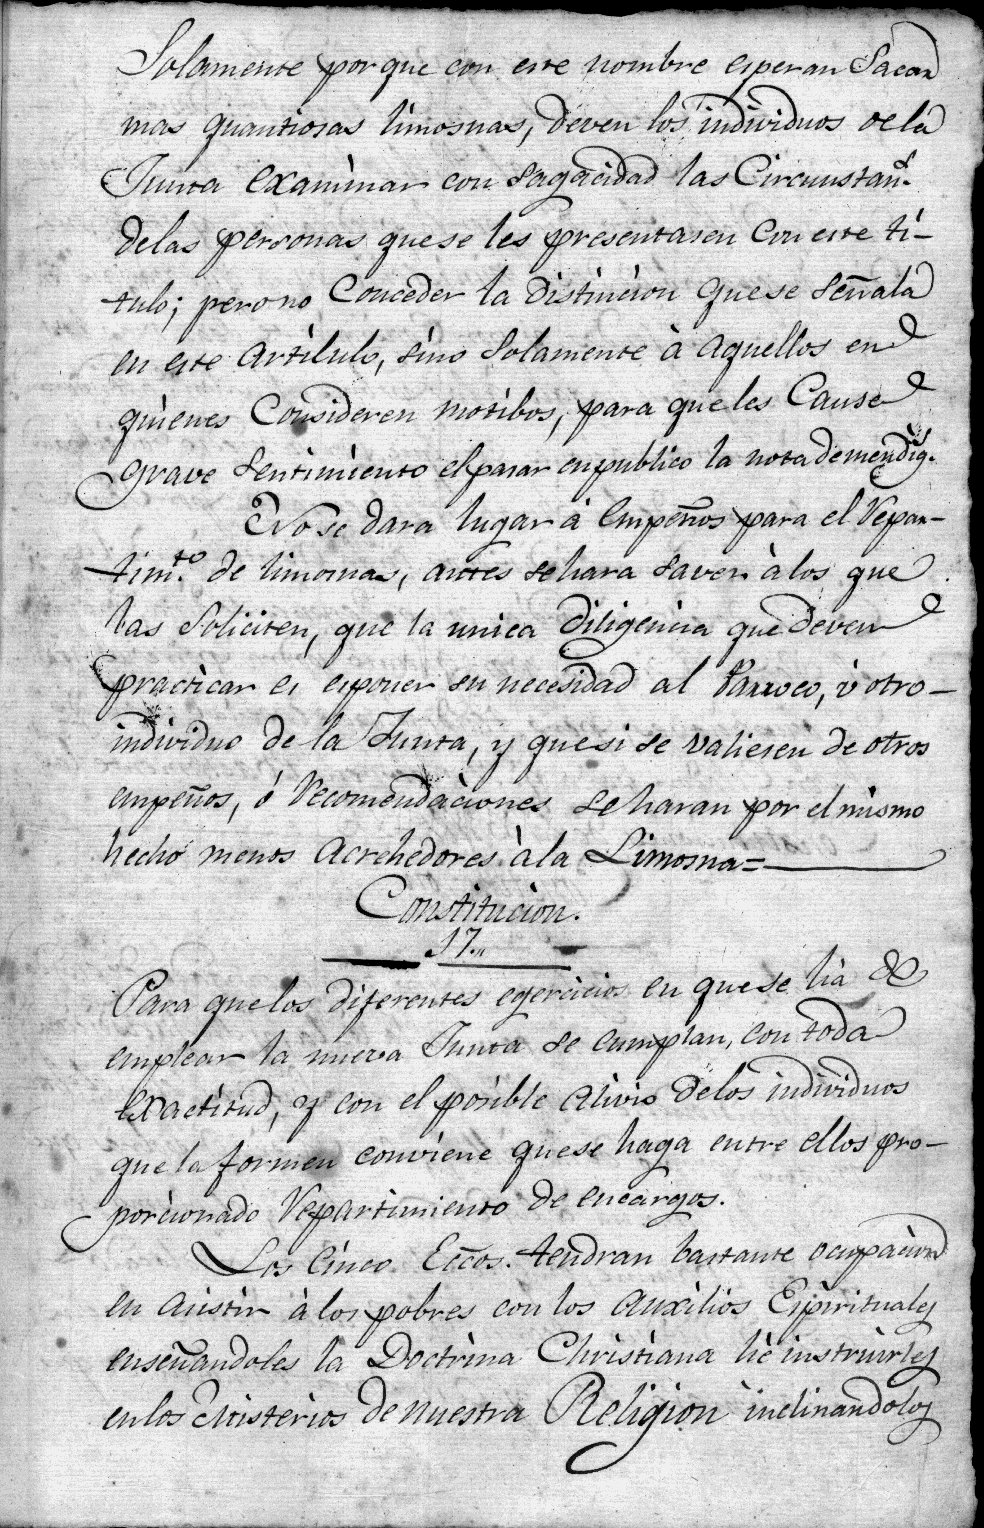 Solamente porque con este nombre esperan Sacar
mas quantiosas limosnas, deven los individuos de la
Junta examinar con sagacidad las Circunstan.s
de las personas que se les presentasen con este ti-
tulo; pero no Conceder la distincion que se señala
en este Artilulo, sino solamente à aquellos en
quienes Consideren motibos, para que les Cause
grave sentimiento el pasar en publico la nota de mendig.s
No se dara lugar à empeños para el Repar-
tim.to de limosnas, antes se hara saver à los que
las Soliciten, que la unica diligencia que deven
practicar es esponer su necesidad al Parroco, ù otro
individuo de la Junta, y que si se valiesen de otros
empeños, ó Recomendaciones se haran por el mismo
hecho menos Acrehedores à la Limosna=
Constitucion.
17.
Para que los diferentes egercicios en que se há de
emplear la nueva Junta se cumplan, con toda
exactitud, y con el posible alivio de los individuos
que la formen conviene que se haga entre ellos pro-
porcionado Repartimiento de encargos.
Los Cinco Eccos. tendran bastante ocupacion
en asistir à los pobres con los Auxilios Espirituales
enseñandoles la Doctrina Christiana hè instruirles
en los Misterios de nuestra Religion inclinandolos